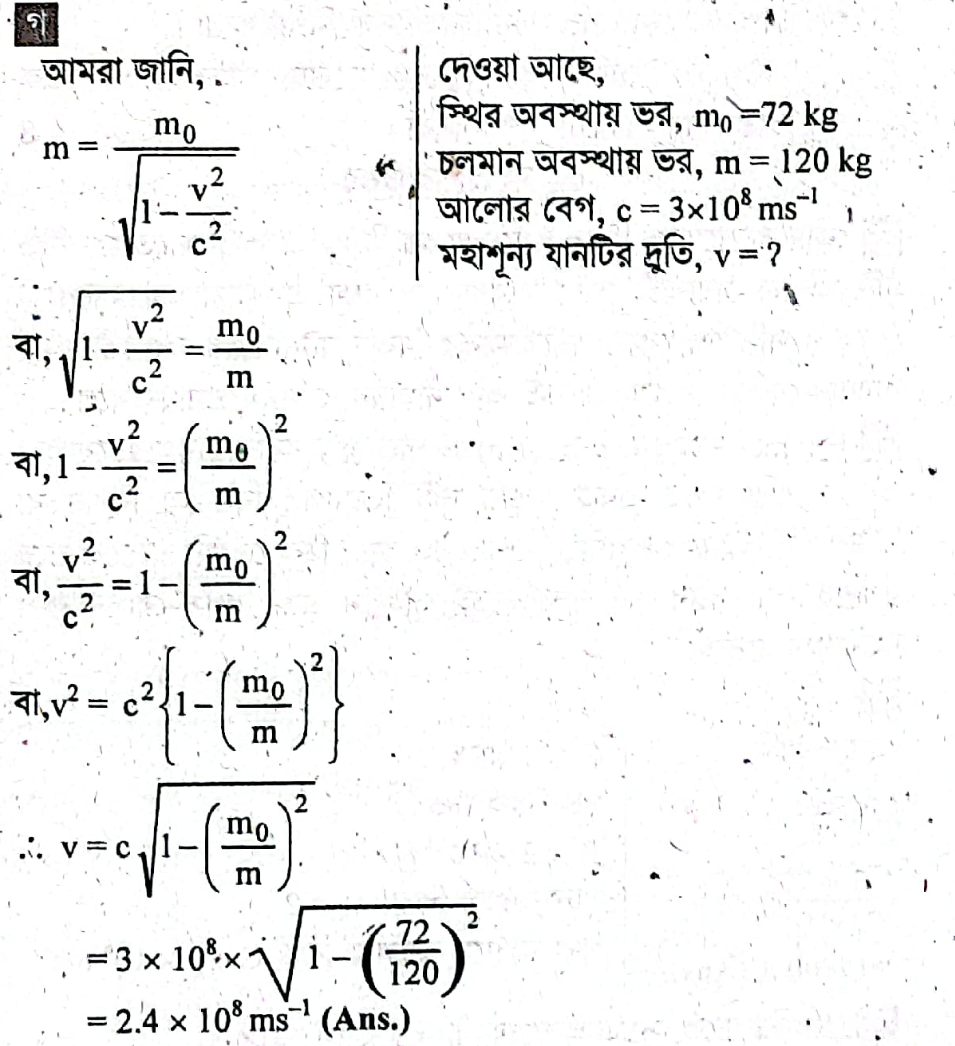 গ
আমরা জানি,
m = m₀ / √(1 − v²/c²)
দেওয়া আছে,
স্থির অবস্থায় ভর, m₀ = 72 kg
চলমান অবস্থায় ভর, m = 120 kg
আলোর বেগ, c = 3×10⁸ ms⁻¹
মহাশূন্য যানটির দ্রুতি, v = ?
বা, √(1 − v²/c²) = m₀/m
বা, 1 − v²/c² = (m₀/m)²
বা, v²/c² = 1 − (m₀/m)²
বা, v² = c²{1 − (m₀/m)²}
∴ v = c √(1 − (m₀/m)²)
= 3 × 10⁸ × √(1 − (72/120)²)
= 2.4 × 10⁸ ms⁻¹ (Ans.)